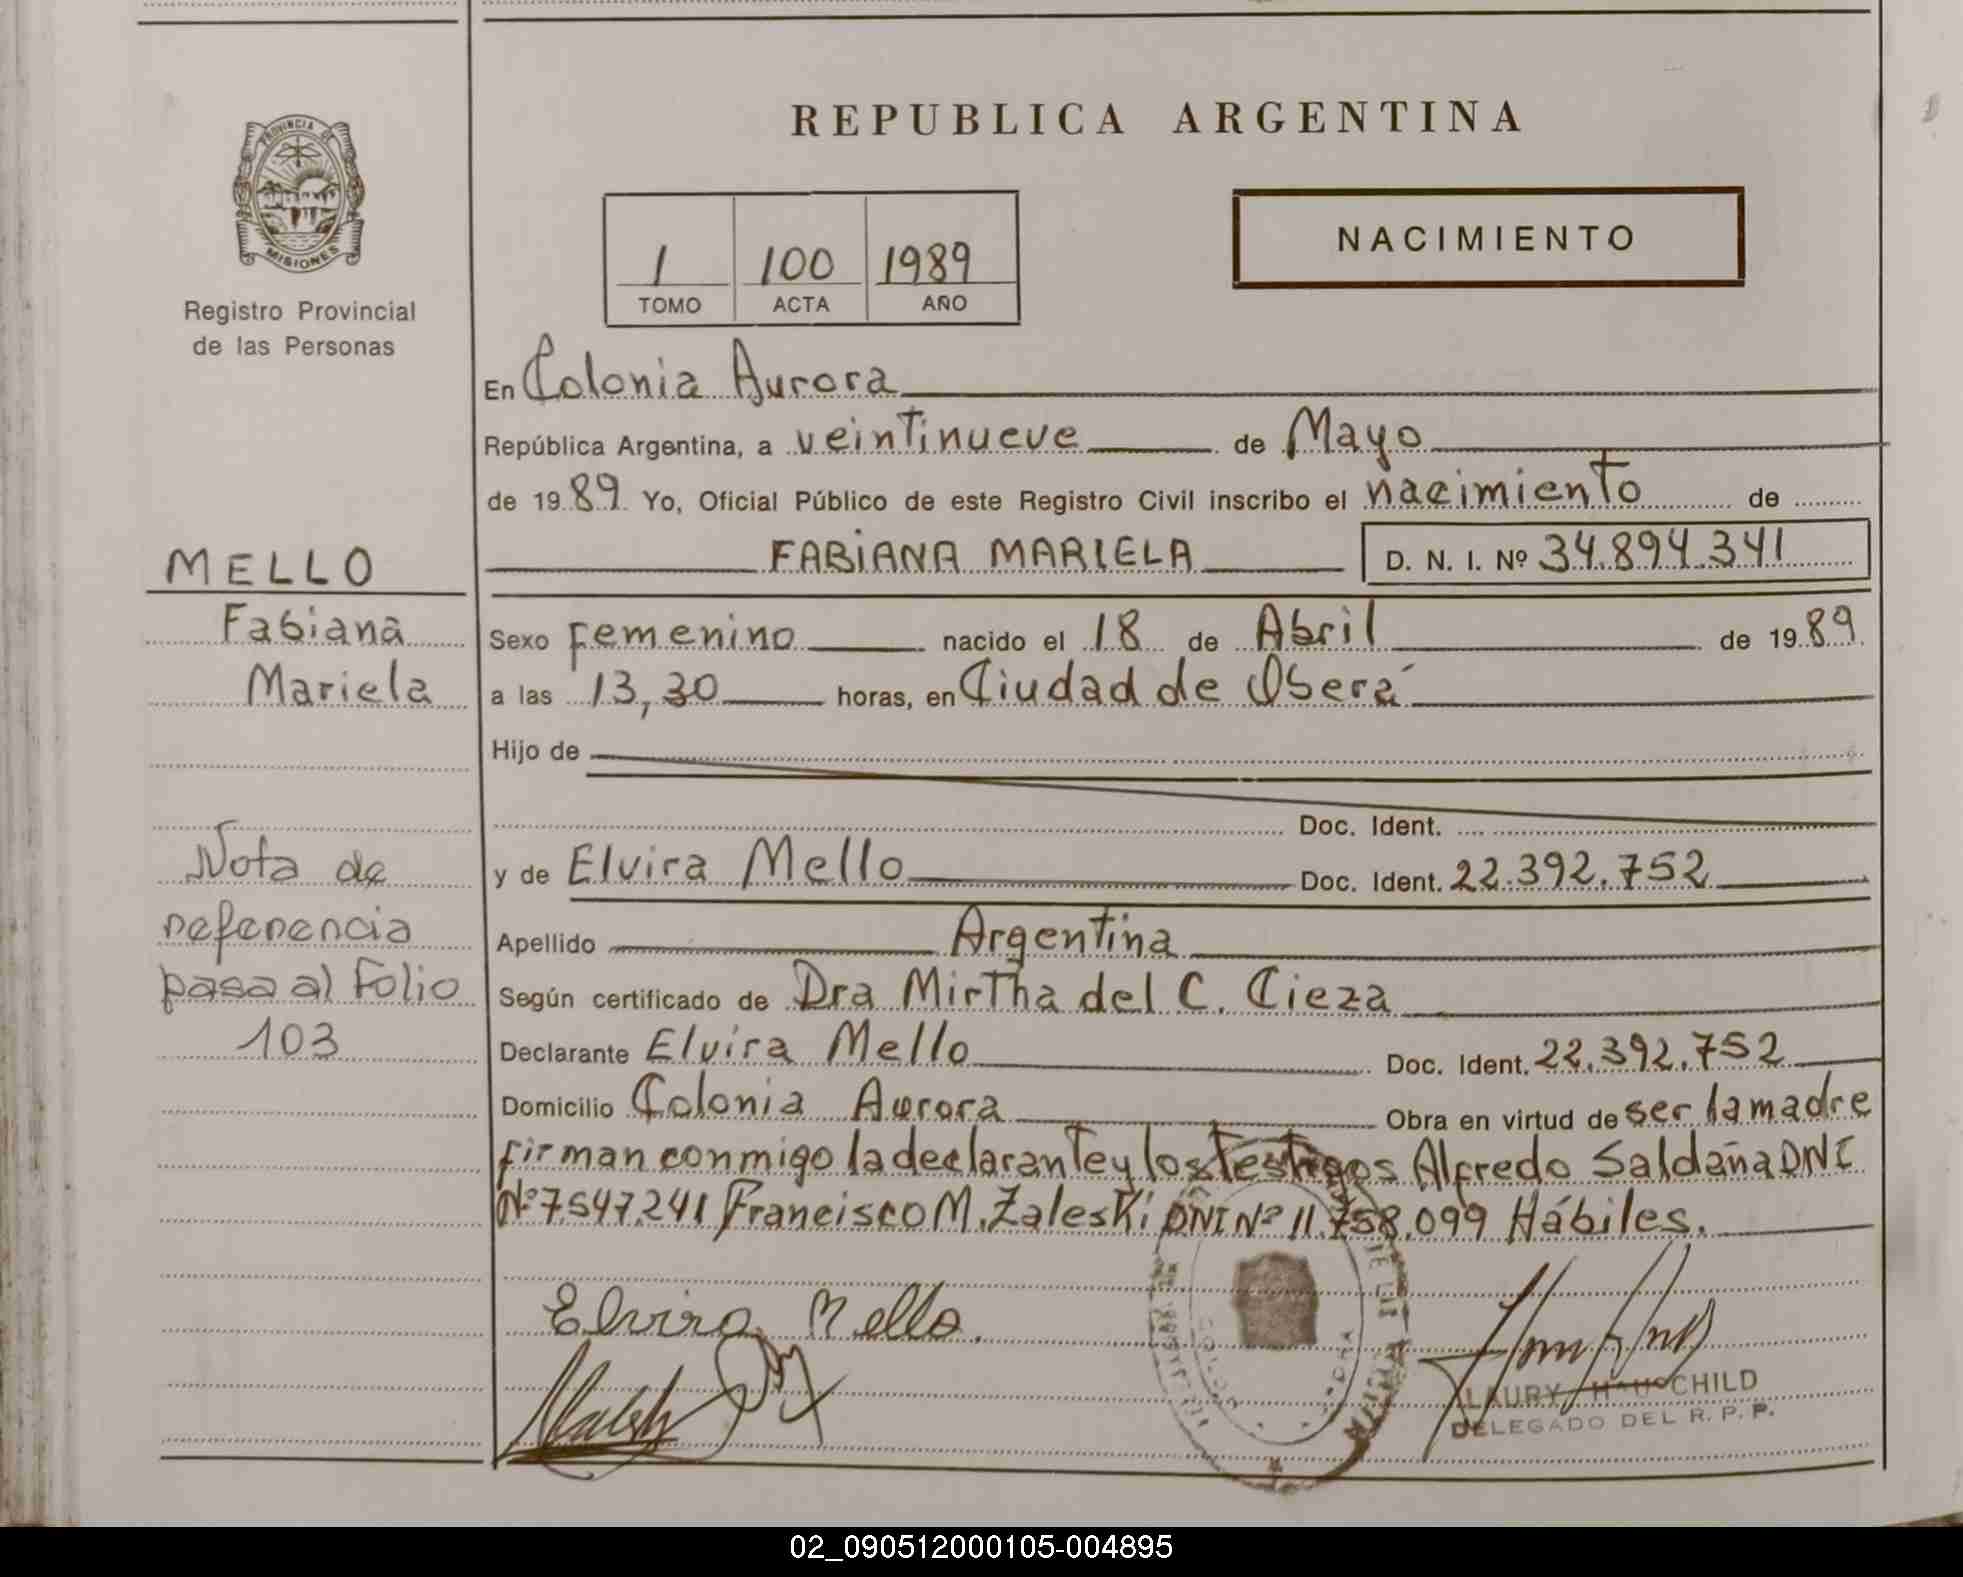 REPUBLICA ARGENTINA
PROVINCIA DE
MISIONES
Registro Provincial
de las Personas
1 100 1989
TOMO ACTA AÑO
NACIMIENTO
En Colonia Aurora
República Argentina, a veintinueve de Mayo
de 1989 Yo, Oficial Público de este Registro Civil inscribo el nacimiento de
FABIANA MARIELA D. N. I. Nº 34.894.341
Sexo Femenino nacido el 18 de Abril de 1989
a las 13,30 horas, en Ciudad de Oberá
Hijo de
Doc. Ident.
y de Elvira Mello Doc. Ident. 22.392.752
Apellido Argentina
Según certificado de Dra Mirtha del C. Cieza
Declarante Elvira Mello Doc. Ident. 22.392.752
Domicilio Colonia Aurora Obra en virtud de ser la madre
firman conmigo la declarante y los testigos Alfredo Saldaña DNI
Nº 7.547.241 Francisco M. Zaleski DNI Nº 11.758.099 Hábiles.
Elvira Mello.
LAURY HAUSCHILD
DELEGADO DEL R. P. P.
MELLO
Fabiana
Mariela
Nota de
referencia
pasa al Folio
103
02_090512000105-004895